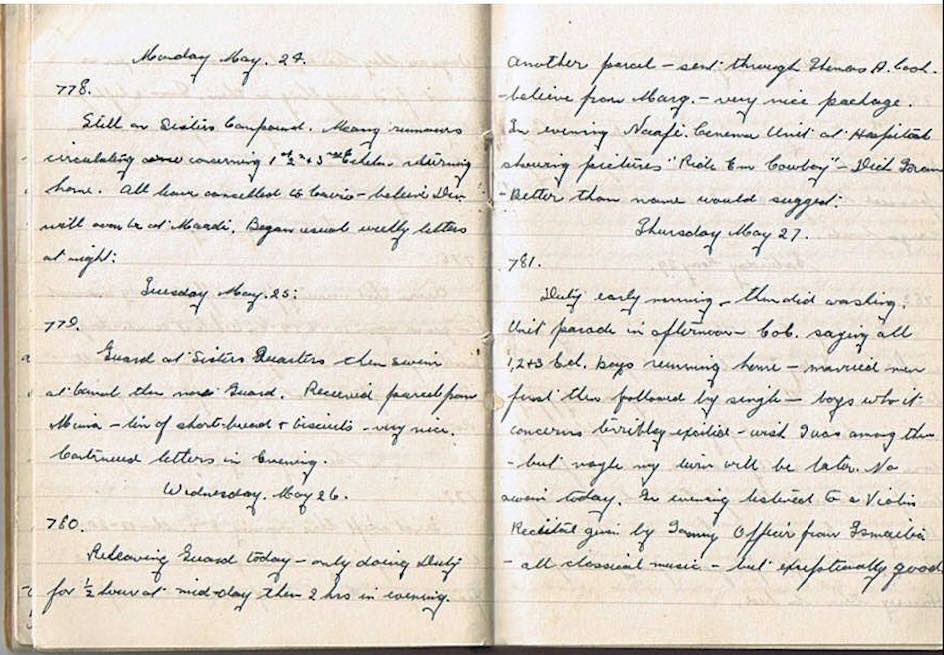 Monday May. 24.
778.
Still on Sisters Compound. Many rumours
circulating concerning 1st 2nd + 3rd Echelon returning
home. All leave cancelled to Cairo – believe Div
will soon be at Maadi. Began usual weekly letters
at night:
Tuesday May. 25:
779.
Guard at Sisters Quarters then swim
at canal then more Guard. Received parcel from
– tin of shortbread + biscuits – very nice.
Continued letters in Evening.
Wednesday. May 26.
780.
Releaving Guard today – only doing Duty
for ½ hour at mid-day then 2 hrs in evening.
another parcel – sent through Thomas A. Cook.
– believe from Marg. – very nice package.
In evening Naafi Cenema Unit at Hospital
showing pictures "Ride Em Cowboy" – Dick Foran
– Better than name would suggest:
Thursday May 27.
781.
Duty early morning – then did washing.
Unit parade in afternoon – Col. saying all
1, 2 + 3 Ech. boys returning home – married men
first then followed by single – boys who it
concerns terribley excited – wish I was among them
– but my turn will be later. No
swim today. In evening listened to a Violin
Recital given by Tommy Officer from Ismailia
– all classical music – but exceptionally good